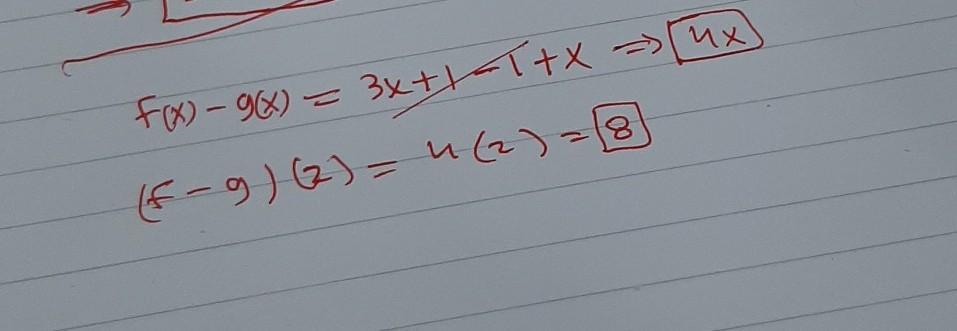 f(x) - g(x) = 3x + 1 - 1 + x ⇒ 4x
(f - g)(2) = 4(2) = 8